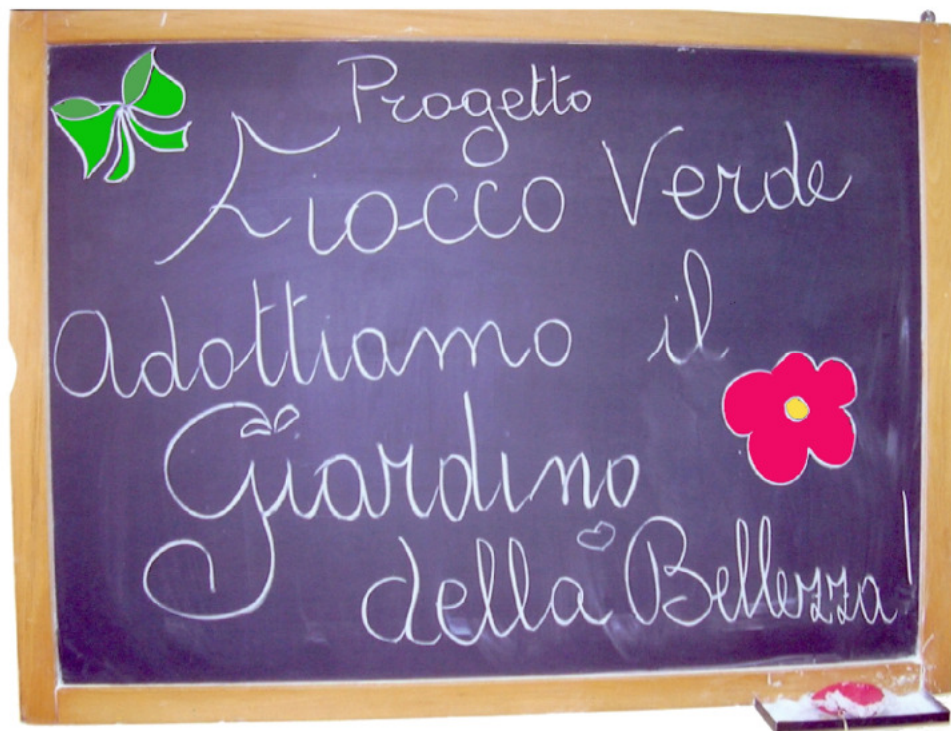 Progetto
Fiocco Verde
adottiamo il
Giardino
della Bellezza!